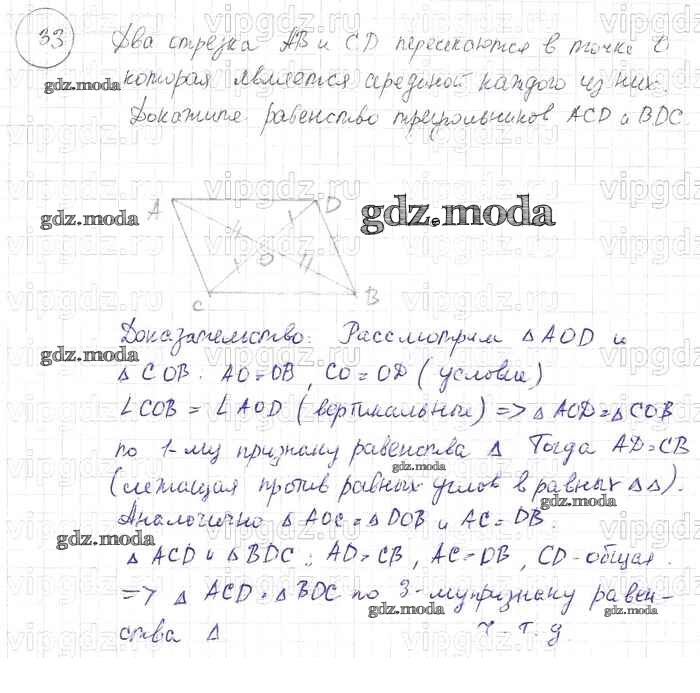 33
Два отрезка AB и CD пересекаются в точке O
которая является серединой каждого из них.
Докажите равенство треугольников ACD и BDC.
gdz.moda
A D
gdz.moda
gdz.moda
O
C B
Доказательство: Рассмотрим △AOD и
gdz.moda
△COB. AO=OB, CO=OD (условие)
∠COB = ∠AOD (вертикальные) => △AOD=△COB
по 1-му признаку равенства △ Тогда AD=CB
gdz.moda
(лежащая против равных углов в равных △△).
gdz.moda
Аналогично △AOC=△DOB и AC=DB.
gdz.moda
△ACD и △BDC: AD=CB, AC=DB, CD-общая.
gdz.moda
=> △ACD=△BDC по 3-му признаку равен-
gdz.moda
gdz.moda
ства △ ч.т.д.
vipgdz.ru